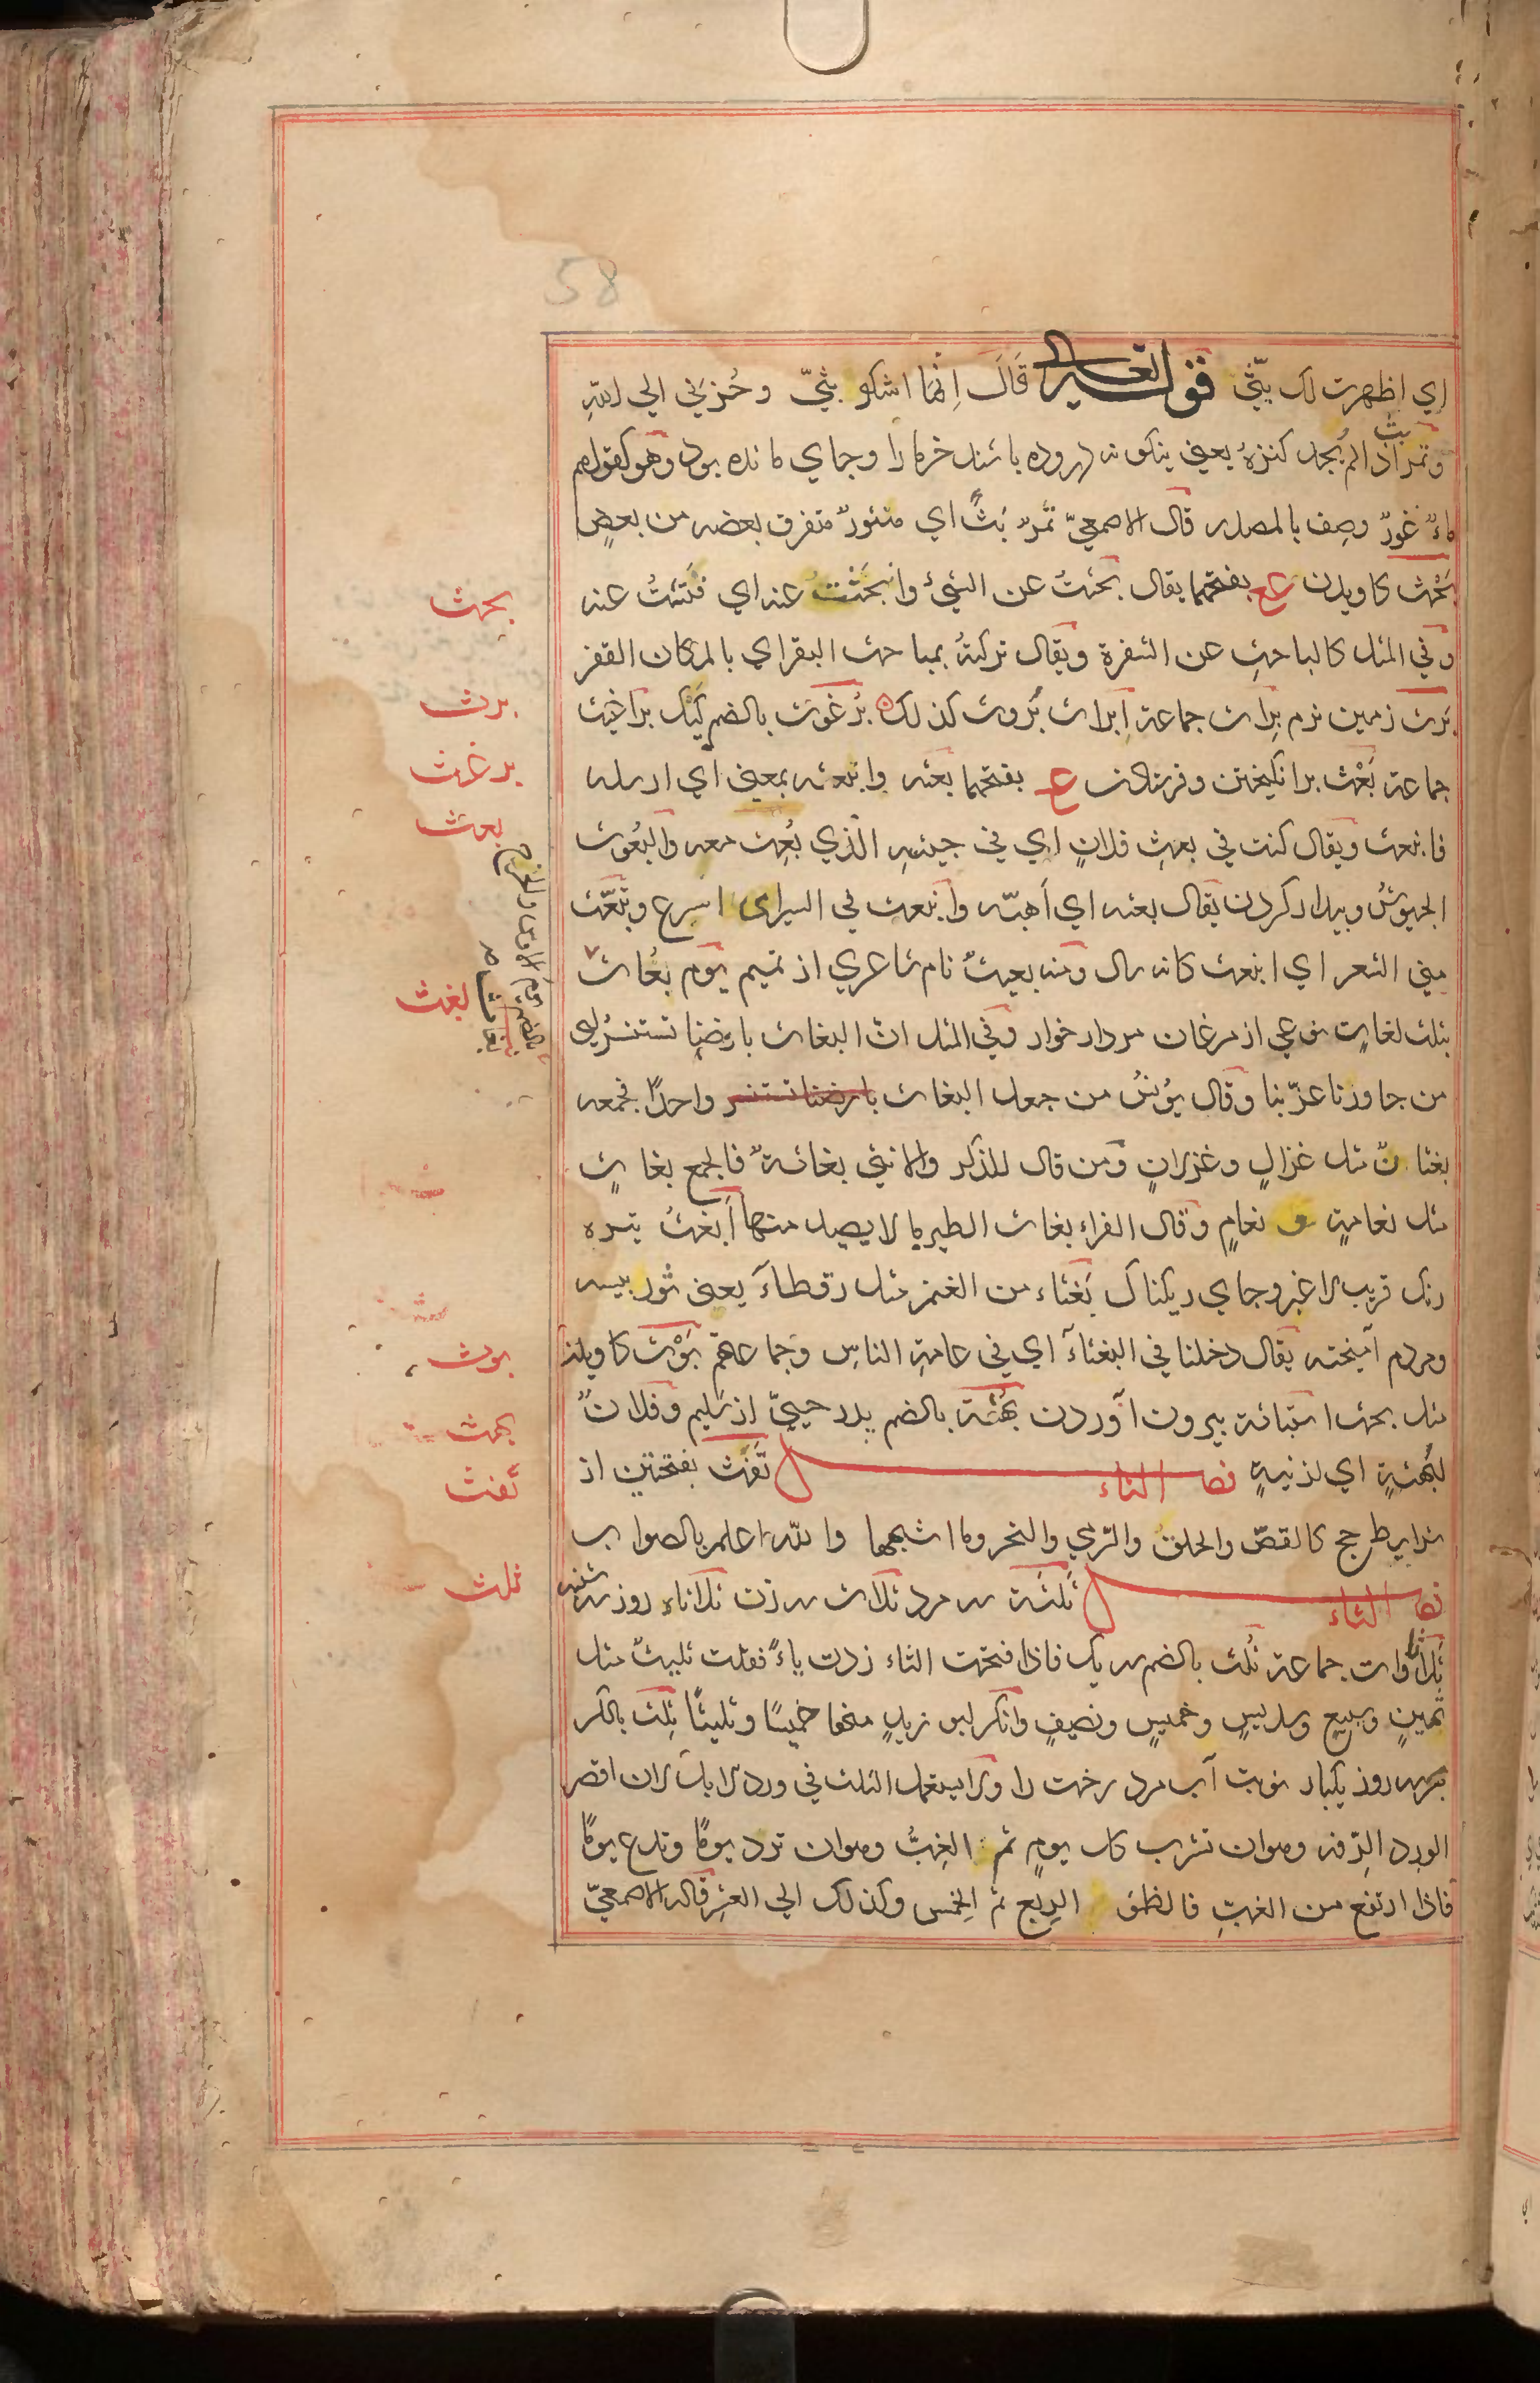 58
اي اظهرت لک بثّي قوله تعالى قَالَ اِنّمَا اشكو بثّيّ وحُزنِي الي اللّهِ
وتمر بثّ اذا لم يُجد كنزهُ يعني نيكو نه دروده باشند خرما را وجاي مانده بود وهو كقولهم
ماءٌ غورٌ وصِف بالمصدر قال الاصمعيّ تمرٌ بَثٌّ اي منثورٌ متفرق بعضه من بعضٍ
بَحْث كاويدن ع بفتحهما يقال بحثتُ عن الشيءِ وابْحَثْتُ عنه اي فتّشتُ عنه
وفي المثل كالباحثِ عن الشفرة ويقال تركتهُ بمباحث البقر اي بالمكان القفر
بَرث زمين نرم بِراث جماعة اَبراث بُروث كذلك ه بُرغوث بالضم كَيك براغيث
جماعة بَعْث برانكيختن وفرستادن ع بفتحهما بعثه وابتعثه بمعني اي ارسله
فانبعث ويقال كنت في بعثِ فلانٍ اي في جيشهِ الّذي بُعِث معه والبُعُوث
الجيوشُ وبيدار كردن يقال بعثه اي اَهبّه وانبعث في السير اي اسرع وتبعّث
مني الشعر اي انبعث كانه سال ومنه بعيثٌ نام شاعري از تميم يوم بعُاث
بثلث لغاتٍ نوعي از مرغان مردار خوار وفي المثل انّ البغاث بارضِنا تستنسرُ اي
من جاوزنا عزّ بنا وقال يوُنسُ من جعل البغاث بارضنا تستنسر واحدًا فجمعه
بغثانٌ مثل غزالٍ وغزلانٍ ومن قال للذكر والانثي بغاثةٌ فالجمع بغاثٍ
مثل نعامةٍ و نعامٍ وقال الفراء بغاث الطير ما لا يصيد منها اَبغثُ تيره
رنك قريب با غبر وجاي ريكناك بَغثاء من الغنم مثل رقطآء يعني شور بيسه
ومردم آميخته يقال دخلنا في البغثآء اي في عامةِ الناسِ وجماعتهم بَوْث كاويدن
مثل بحث استباثة بيرون آوردن بُهْثَة بالضم پدر حييّ از سُليم وفلانٌ
لبُهثةٍ اي لزنيةٍ فصل التاء تَفَث بفتحتين از
شراير طرح كالقصّ والحلق والرّمي والنحر وما اشبهها واللّه اعلم بالصواب
فصل الثاء ثَلثَة سه مرد ثلاث سه زن ثلاثاء روز سه شنبه
ثلاثاوات جماعة ثُلث بالضم سه يك فاذا فتحت الثاء زدت ياءً فقلت ثليثٌ مثل
ثمينٍ وسبيعٍ وسديسٍ وخميسٍ ونصيفٍ وانكر ابو زيدٍ منها خميسًا وثليثًا ثِلث بالكسر
بهر سه روز يكبار نوبت آب مرد رخت را ولا يستعمل الثلث في ورد الابل لان اقصر
الورد الرّفه وهو ان تشرب كل يومٍ ثم الغِبّ وهو ان ترد يومًا وتدع يومًا
فاذا ارتفع من الغبّ فالظمؤ الربع ثم الخِمس وكذلك الي العشرِ قاله الاصمعيّ
بحث
برث
برغث
بعث
بغث
بوث
بهث
تفث
ثلث